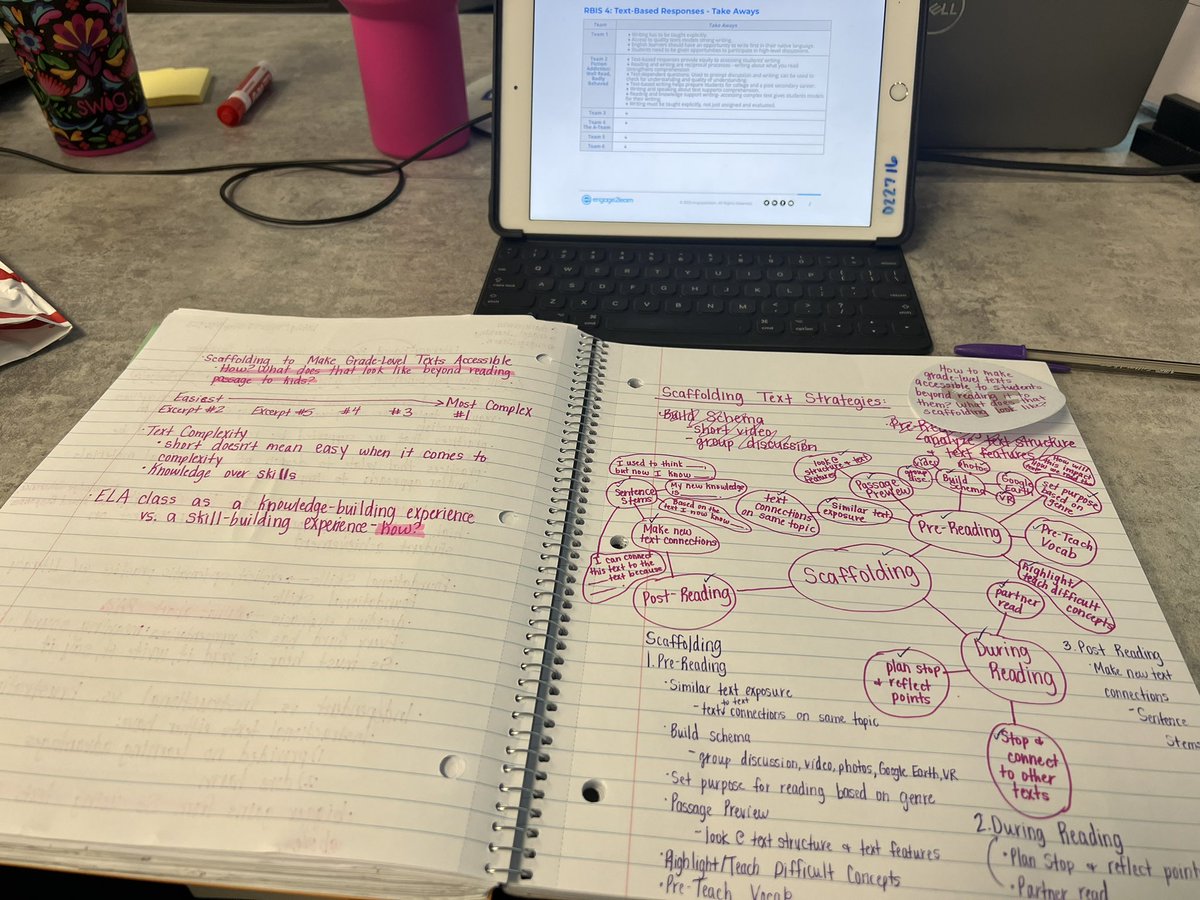 RBIS 4: Text-Based Responses - Take Aways
Team
Take Aways
Team 1
• Writing has to be taught explicitly.
• Access to quality texts models strong writing.
• English learners should have an opportunity to write first in their native language.
• Students need to be given opportunities to participate in high-level discussions.
Team 2
Fiction
Addiction:
Well Read,
Badly
Behaved
• Text-based responses provide equity to assessing students' writing
• Reading and writing are reciprocal processes - writing about what you read
strengthens comprehension.
• Text-dependent questions: Used to prompt discussion and writing; can be used to
check for understanding and quality of understanding.
• Text-based writing helps prepare students for college and a post secondary career.
• Writing and speaking about text supports comprehension.
• Reading and knowledge support writing- accessing complex text gives students models
for their writing.
• Writing must be taught explicitly, not just assigned and evaluated.
Team 3
Team 4
The A-Team
Team 5
Team 6
engage2learn
D22716
DELL
swig
Scaffolding to Make Grade-Level Texts Accessible
How? What does that look like beyond reading
passage to kids?
Easiest → Most Complex
Excerpt #2 Excerpt #5 #4 #3 #1
· Text Complexity
• short doesn't mean easy when it comes to
complexity
· Knowledge over skills
· ELA class as a knowledge-building experience
vs. a skill-building experience - how?
Scaffolding Text Strategies:
· Build Schema
- short video
- group discussion
analyze text structure
& text features
How to make
grade-level texts
accessible to students
beyond reading it to
them? What does that
scaffolding look like?
I used to think ___,
but now I know ___.
Sentence
Stems
My new knowledge
is ___
Based on the
text I now know ___
Make new
text connections
I can connect
this text to the
___ text because
Post-Reading
look @
structure & text
features
Passage
Preview
text
connections
on same topic
Similar text
exposure
video
group
disc.
photos
Build
Schema
Google
Earth
VR
How will
this impact
how we read it?
Set purpose
based on
genre
Pre-Reading
Pre-Teach
Vocab
highlight/
teach difficult
concepts
Scaffolding
partner
read
During
Reading
plan stop
& reflect
points
Stop &
connect
to other
texts
Scaffolding
1. Pre-Reading
· Similar text exposure
- text to text connections on same topic
· Build schema
- group discussion, video, photos, Google Earth, VR
· Set purpose for reading based on genre
· Passage Preview
- look @ text structure & text features
· Highlight/Teach Difficult Concepts
· Pre-Teach Vocab
2. During Reading
· Plan Stop & reflect points
· Partner read
3. Post Reading
· Make new text
connections
- Sentence
Stems